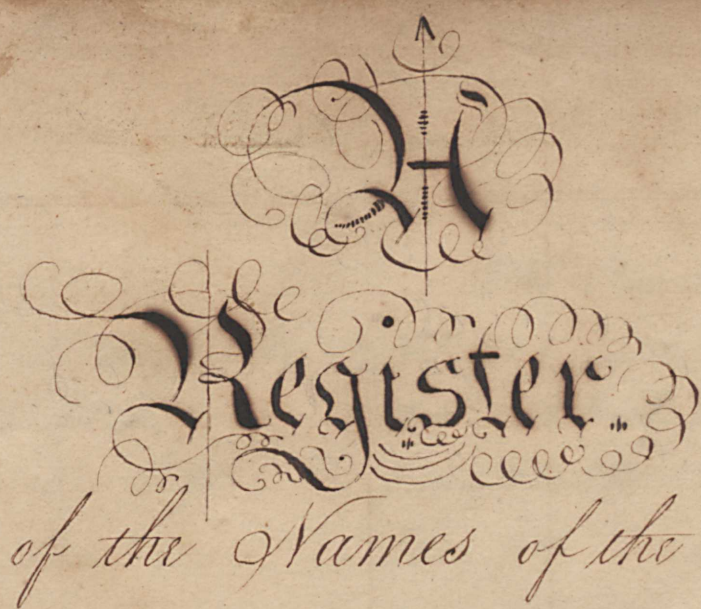 A
Register.
of the Names of the